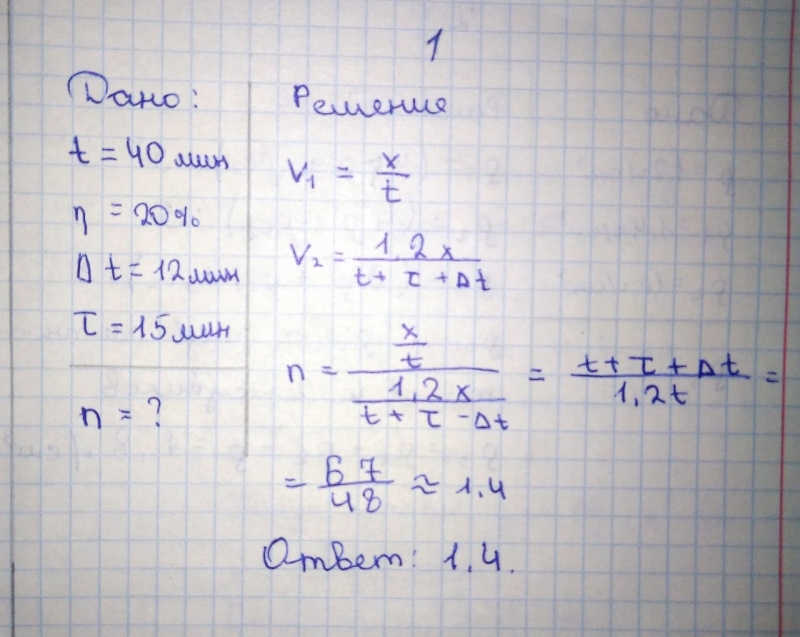 1
Дано:
t = 40 мин
η = 20%
Δt = 12 мин
τ = 15 мин
n = ?
Решение
V₁ = x/t
V₂ = 1,2x/(t + τ + Δt)
n = (x/t)/(1,2x/(t + τ - Δt)) = (t + τ + Δt)/1,2t =
= 67/48 ≈ 1.4
Ответ: 1.4.